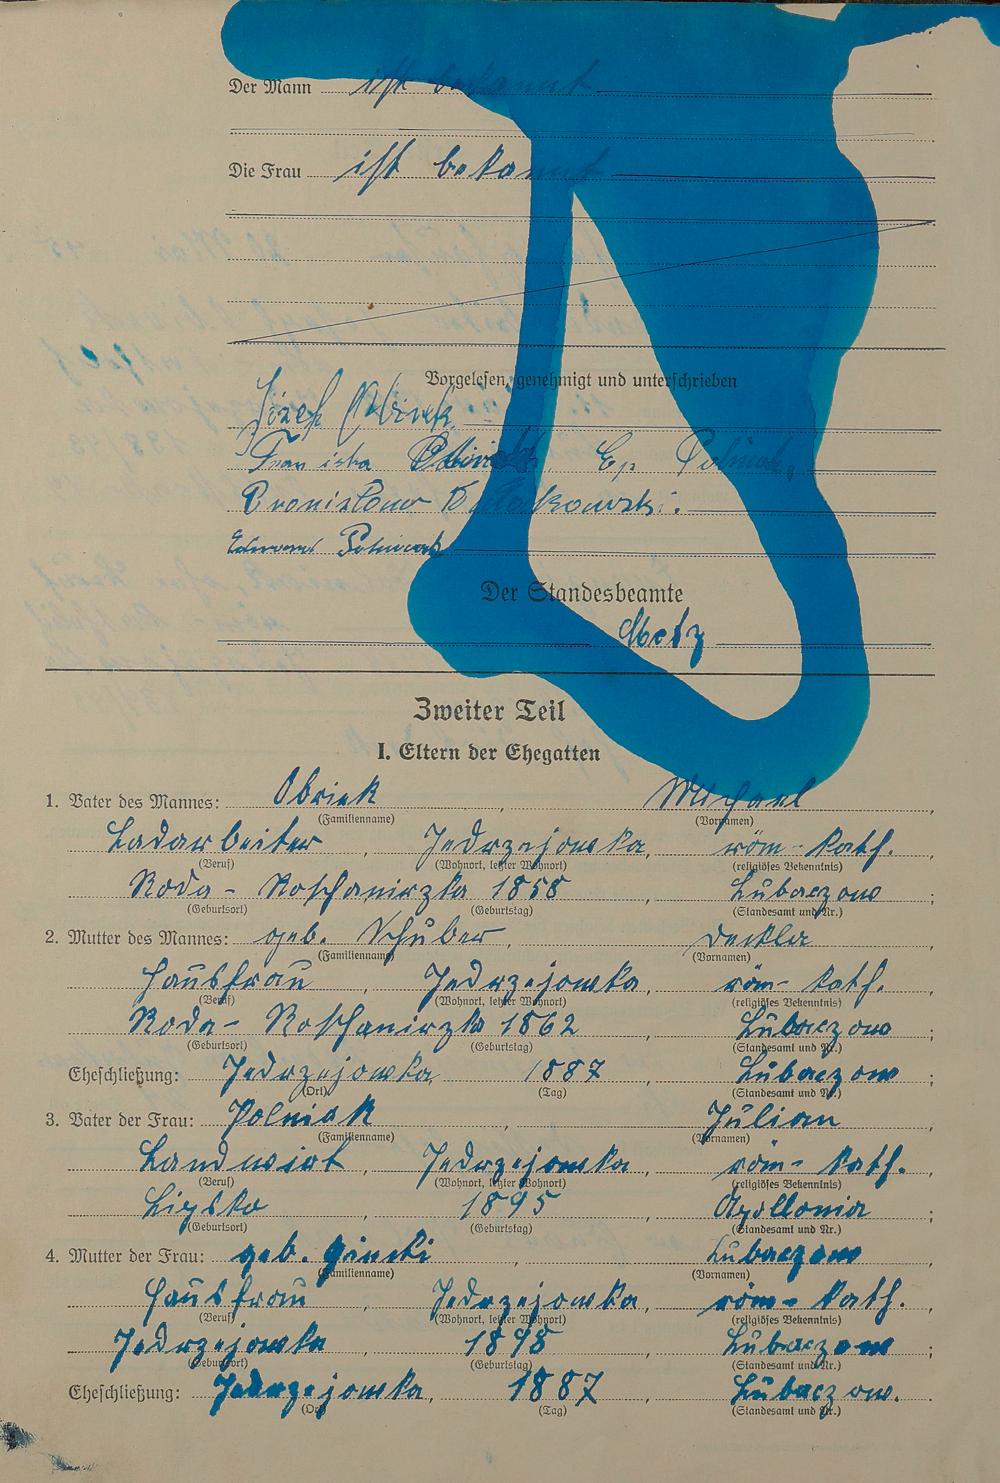 Der Mann ist bekannt
Die Frau ist bekannt
Vorgelesen, genehmigt und unterschrieben
Józef Obirek
Franciska Obirek, Polniak,
Bronislaw
Polniak
Der Standesbeamte
Metz
Zweiter Teil
I. Eltern der Ehegatten
1. Vater des Mannes: Obriek, Michael,
(Familienname) (Vornamen)
Ladarbeiter, Jedrzejowka, röm-kath.
(Beruf) (Wohnort, letzter Wohnort) (religiöses Bekenntnis)
Roda- Roschanirzka 1858 Lubaczow;
(Geburtsort) (Geburtstag) (Standesamt und Nr.)
2. Mutter des Mannes: geb. Schuber, Deckla,
(Familienname) (Vornamen)
Hausfrau, Jedrzejowka, röm-kath.
(Beruf) (Wohnort, letzter Wohnort) (religiöses Bekenntnis)
Roda- Roschanirzka 1862 Lubaczow;
(Geburtsort) (Geburtstag) (Standesamt und Nr.)
Eheschließung: Jedrzejowka, 1887, Lubaczow;
(Ort) (Tag) (Standesamt und Nr.)
3. Vater der Frau: Polniak, Julian,
(Familienname) (Vornamen)
Landwirt, Jedrzejowka, röm-kath.
(Beruf) (Wohnort, letzter Wohnort) (religiöses Bekenntnis)
Lipsko 1895 Apollonia;
(Geburtsort) (Geburtstag) (Standesamt und Nr.)
4. Mutter der Frau: geb., Lubaczow,
(Familienname) (Vornamen)
Hausfrau, Jedrzejowka, röm-kath.
(Beruf) (Wohnort, letzter Wohnort) (religiöses Bekenntnis)
Jedrzejowka, 1898, Lubaczow;
(Geburtsort) (Geburtstag) (Standesamt und Nr.)
Eheschließung: Jedrzejowka, 1887, Lubaczow.
(Ort) (Tag) (Standesamt und Nr.)